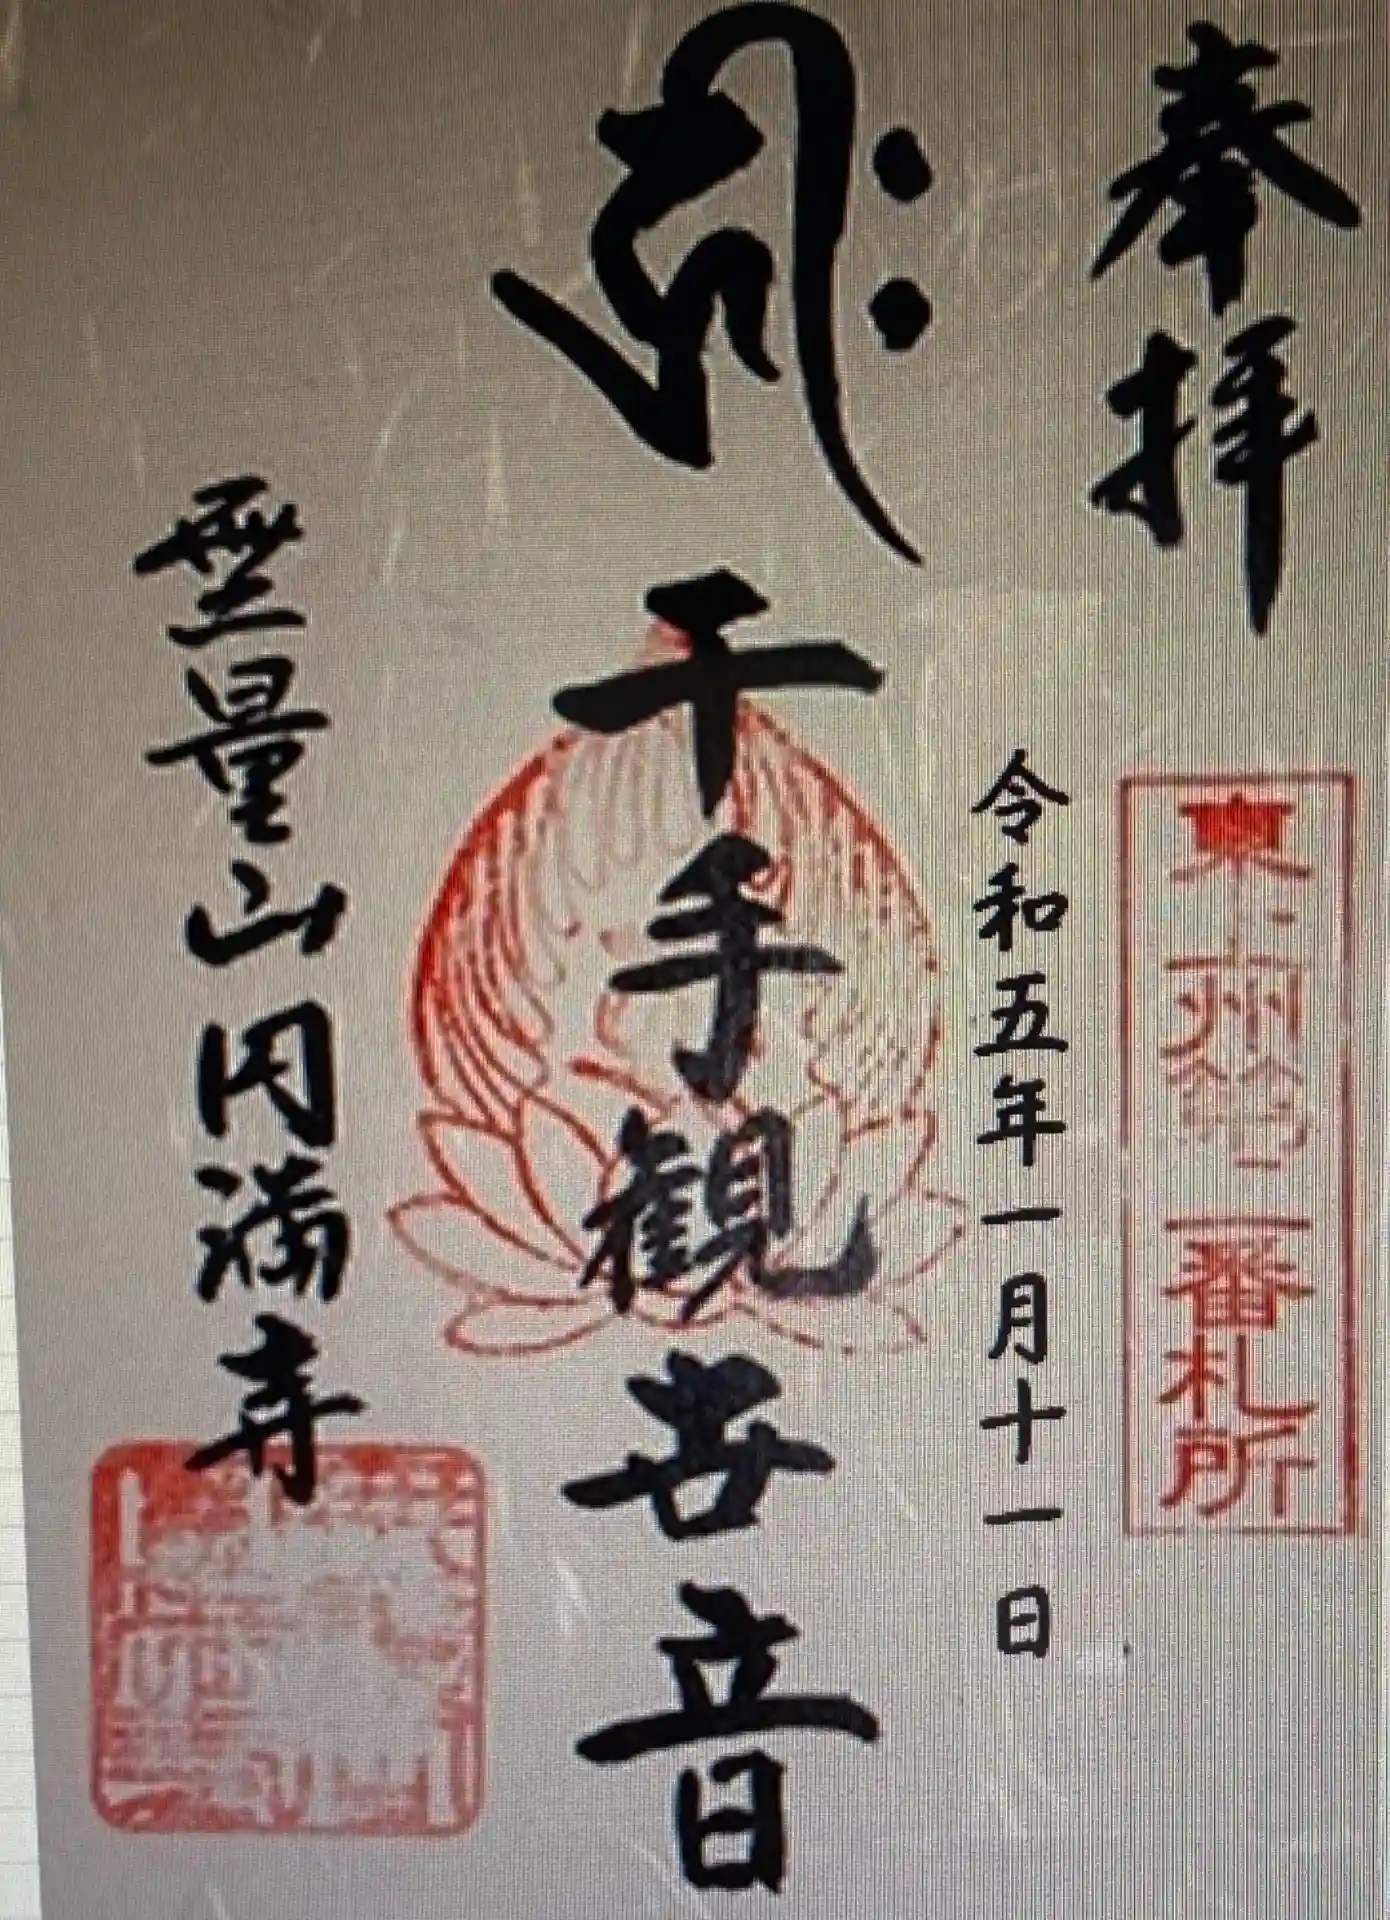 奉拝
東州第二番札所
令和五年一月十一日
𑖮𑖿𑖨𑖱𑖾
千手観世音
無量山円満寺